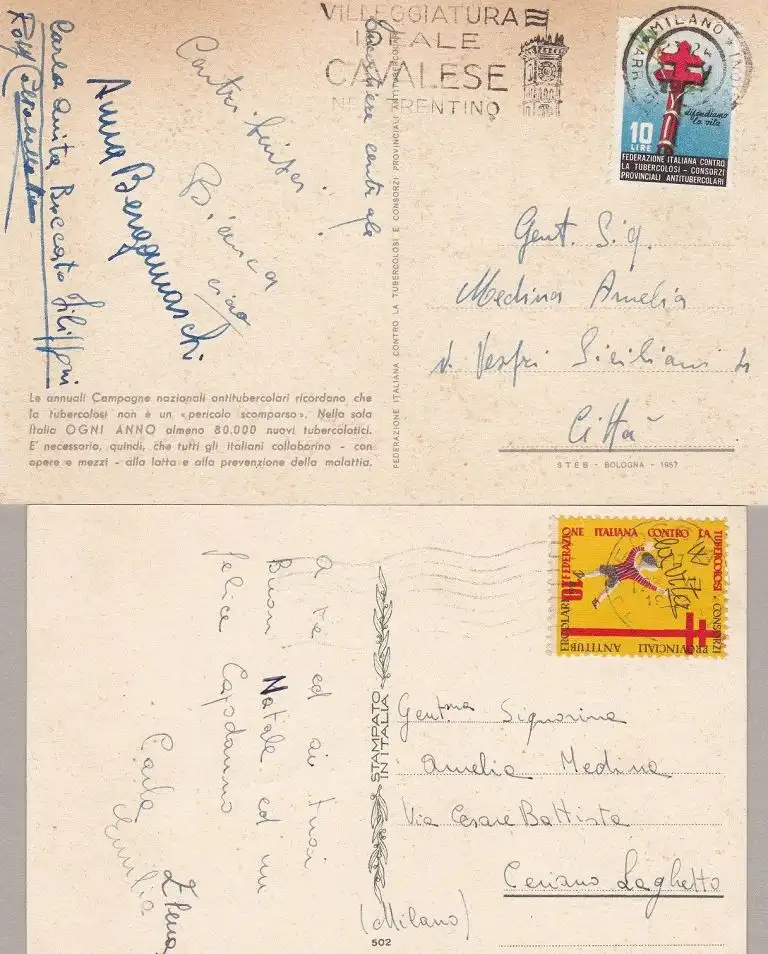 VILLEGGIATURA
IDEALE
CAVALESE
NEL TRENTINO
MILANO
difendiamo
la vita
10
LIRE
FEDERAZIONE ITALIANA CONTRO
LA TUBERCOLOSI - CONSORZI
PROVINCIALI ANTITUBERCOLARI
Carla Anita Boccato Filippini
Anna Bergamaschi
Bianca
ciao
Gent. Sig.
Medina Amelia
v. Vespri Siciliani
Città
FEDERAZIONE ITALIANA CONTRO LA TUBERCOLOSI E CONSORZI PROVINCIALI ANTITUBERCOLARI
Le annuali Campagne nazionali antitubercolari ricordano che
la tubercolosi non è un «pericolo scomparso». Nella sola
Italia OGNI ANNO almeno 80.000 nuovi tubercolotici.
E' necessario, quindi, che tutti gli italiani collaborino - con
opere e mezzi - alla lotta e alla prevenzione della malattia.
STEB - BOLOGNA - 1957
FEDERAZIONE ITALIANA CONTRO LA TUBERCOLOSI - CONSORZI PROVINCIALI ANTITUBERCOLARI
10
la vita
A te ed ai tuoi
Buon Natale ed un
felice Capodanno
Carla
Emilia
Elena
STAMPATO
IN ITALIA
502
Gent.ma Signorina
Amelia Medina
Via Cesare Battista
Ceriano Laghetto
(Milano)